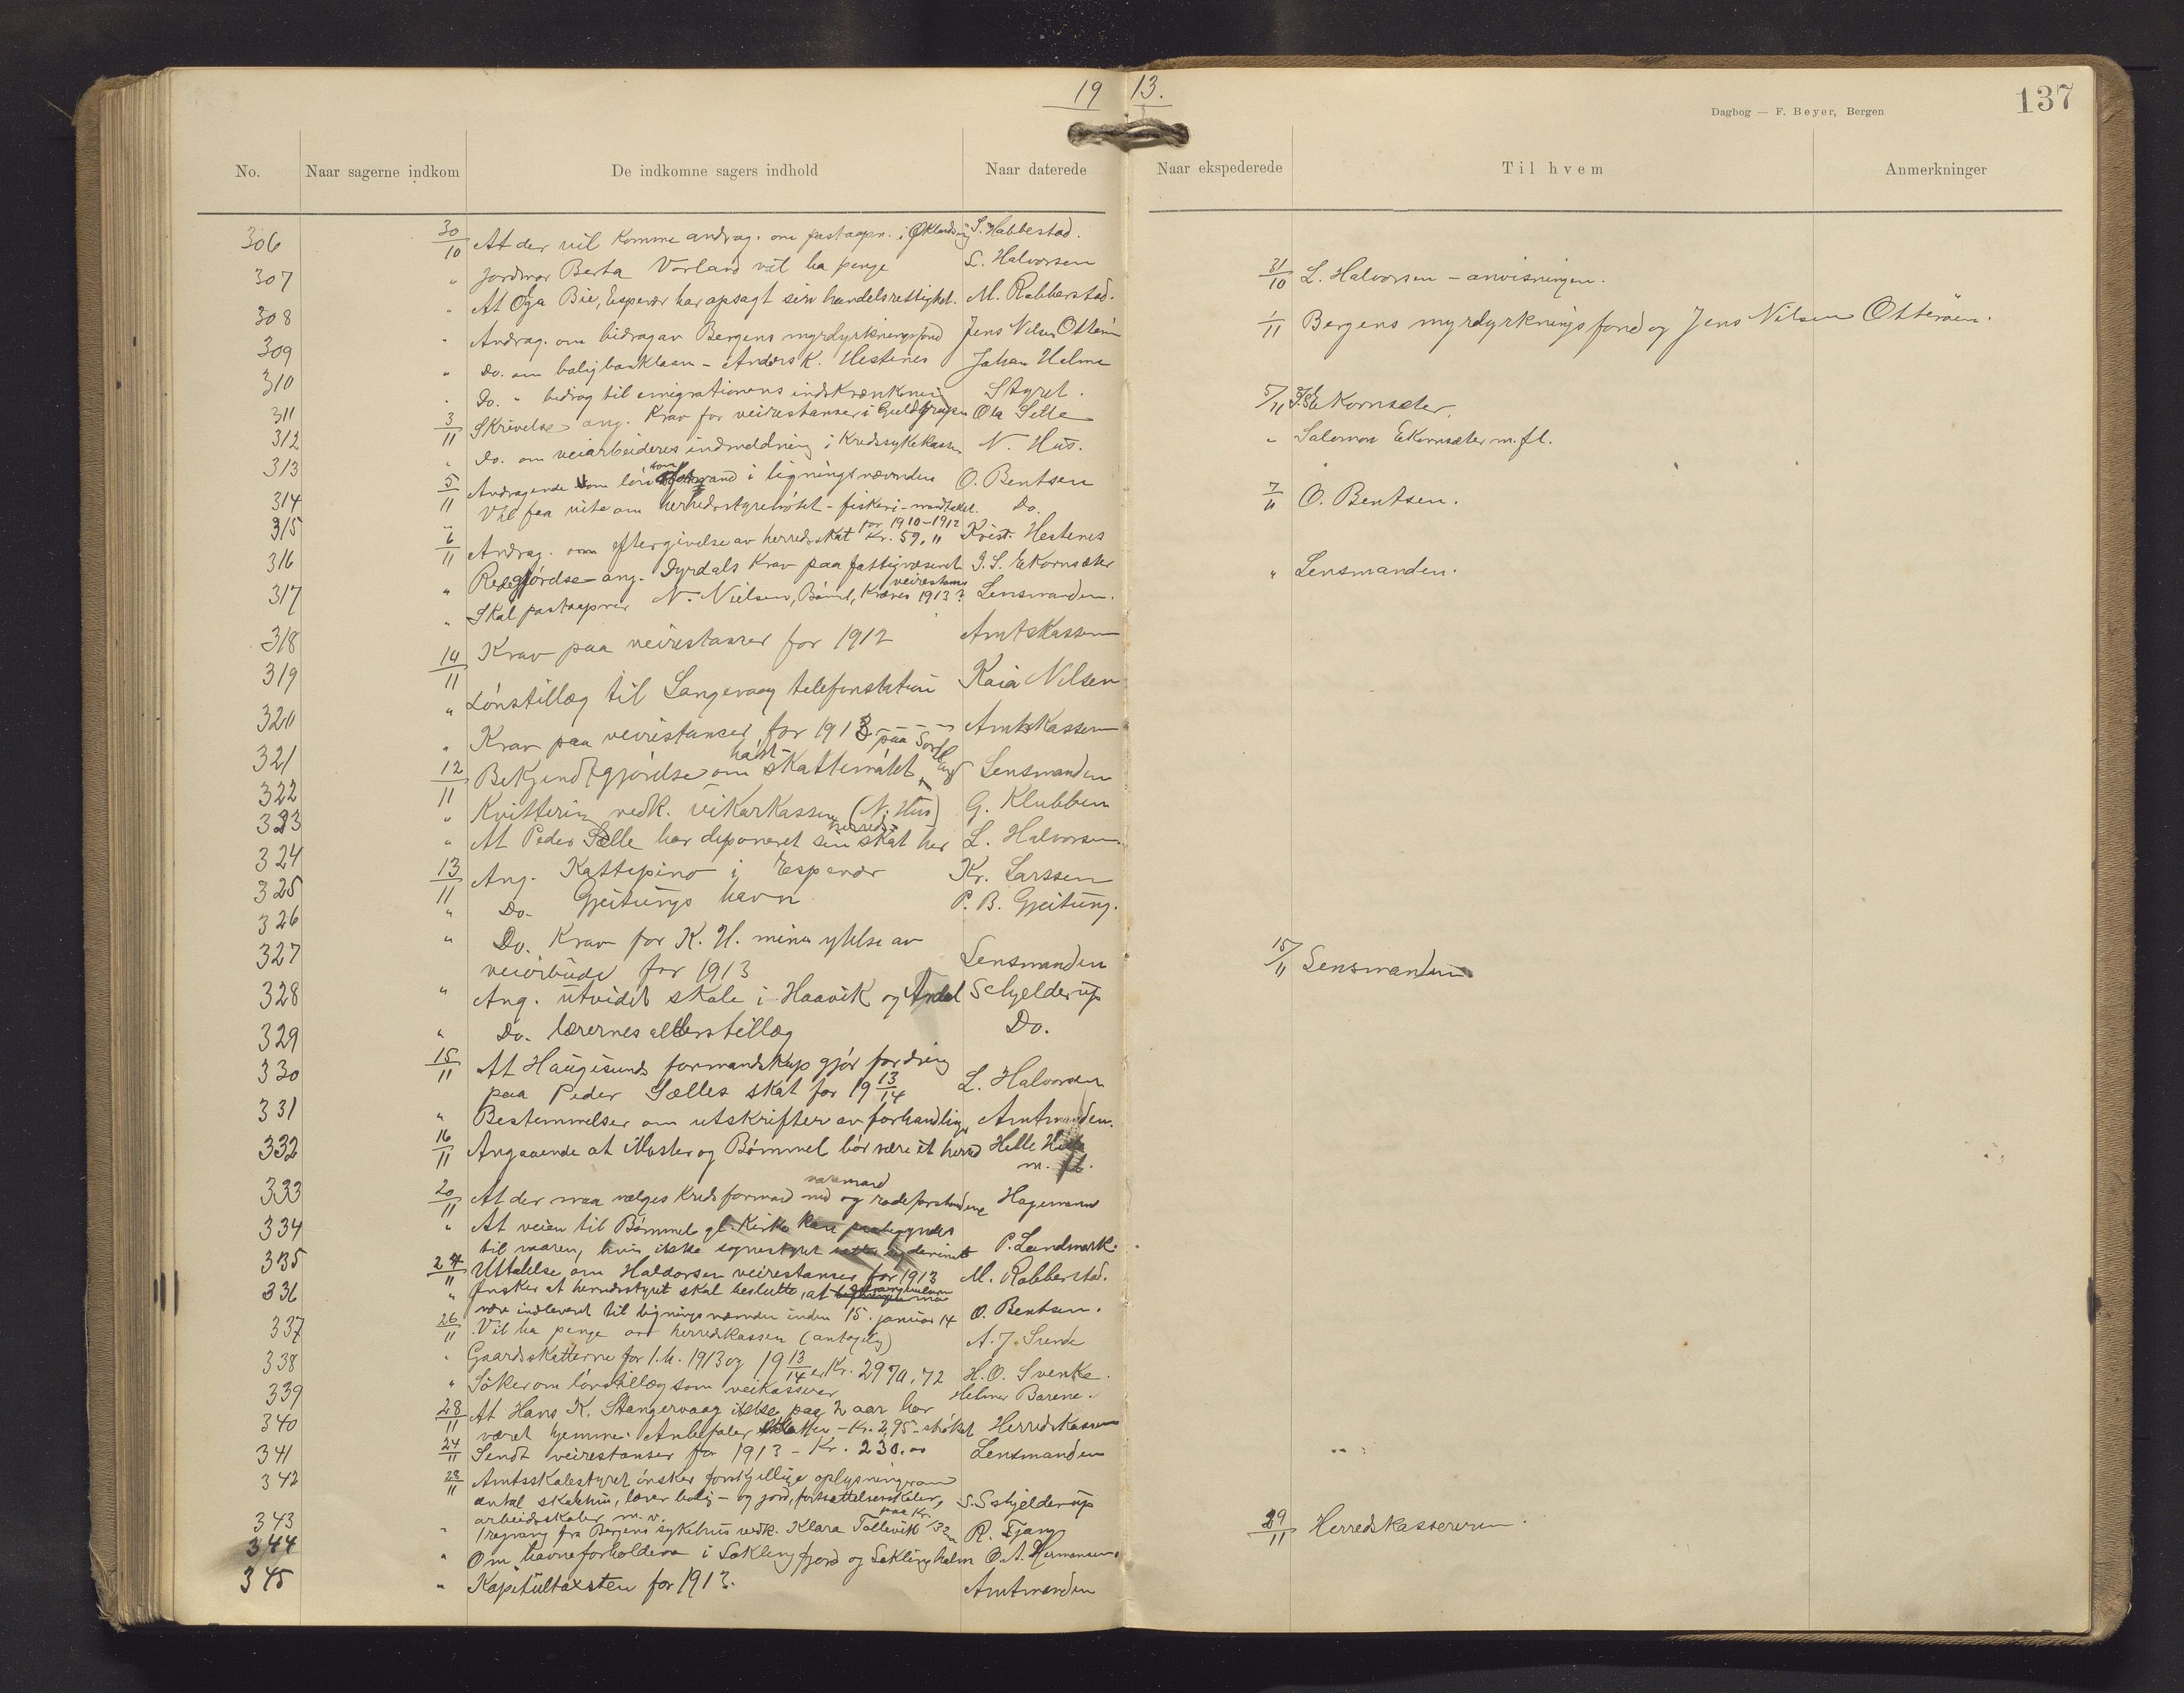 19 13.
137
Dagbog — F. Beyer, Bergen
No. Naar sagerne indkom De indkomne sagers indhold Naar daterede Naar ekspederede Til hvem Anmerkninger
306 30/10 At der vil komme andrag. om postaapn. i S. Habbestad.
307 " Jordmor Berta Vorland vil ha penge L. Halvorsen 31/10 L. Halvorsen - anvisningen.
308 " At Oga Bie, Espevær har opsagt sin handelsrettighet. M. Robberstad.
309 " Andrag. om bidrag av Bergens myrdyrkningsfond Jens Nilsen Otterøen 1/11 Bergens myrdyrkningsfond og Jens Nilsen Otterøen.
310 " Do. om boligbanklaan - Anders K. Hestenes Johan Helme
311 " Do. " bidrag til emigrationens indskrænkning Styret.
312 3/11 Skrivelse ang. Krav for veirestanser i Ola Selle 5/11 Ekornsæter.
313 " Do. om veiarbeideres indmeldning i Kredssykekassen N. Hus. " Salomon Ekornsæter m. fl.
314 5/11 Andragende om løn som i ligningsnævnden O. Bentsen 7/11 O. Bentsen.
315 " Vil faa vite om herredsstyremøtet - fiskeri-mandtallet. Do.
316 6/11 Andrag. om eftergivelse av herredsskat for 1910-1912 Kr. 59, " Krist. Hestenes
317 " Redegjørelse ang. Dyrdals Krav paa fattigvæsenet I. S. Ekornsæter " Lensmanden.
" Skal postaapner N. Nielsen, Bømt, Kræves veirestans 1913? Lensmanden.
318 14/11 Krav paa veirestanser for 1912 Amtskassen
319 " Lønstillæg til Langevaag telefonstation Kaia Nilsen
320 " Krav paa veirestanser for 1913 Amtskassen
321 12/11 Bekjendtgjørelse om høst-skattemøtet paa Lensmanden
322 " Kvittering vedk. vikarkassen (N. Hus) G. Klubben
323 " At Peder Sælle har deponeret sin herredsskat her L. Halvorsen
324 13/11 Ang. Kattepino i Espevær Kr. Larssen
325 " Do. Gjeitungs havn P. B. Gjeitung.
326 " Do. Krav for K. H. minus ytelse av
veiarbeide for 1913 Lensmanden 15/11 Lensmanden
327
328 " Ang. utvidet skole i Haavik og Schjelderup
329 " Do. lærernes alderstillæg Do.
330 15/11 At Haugesunds formandskap gjør fordring
paa Peder Sælles skat for 19 13/14 L. Halvorsen
331 " Bestemmelser om utskrifter av forhandlinger Amtmanden.
332 16/11 Angaaende at Moster og Bømmel bør være et herred Helle
m. fl.
333 20/11 At der maa vælges kredsformand varamand og rodeforstandere Hagemann
334 " At veien til Bømmel gl. Kirke kan paabegyndes
til vaaren, hvis ikke sognestyret P. Landmark.
335 24/11 Uttalelse om Haldorsen veirestanser for 1913 M. Robberstad.
336 " Ønsker at herredsstyret skal beslutte, at
være indleveret til ligningsnævnden inden 15. januar 14 O. Bentsen.
337 26/11 Vil ha penge av herredskassen (antagelig) A. J. Sunde
338 " Gaardsskatterne for 1. h. 1913 og 19 13/14 er Kr. 2970,72 H. O. Svenke.
339 " Søker om lønstillæg som veikasserer Helmer Barene.
340 28/11 At Hans K. Stangervaag ikke paa 2 aar har
været hjemme. Anbefaler skatten - Kr. 2,95 - strøket Herredskassen
341 24/11 Sendt veirestanser for 1913 - Kr. 230.00 Lensmanden
342 28/11 Amtsskolestyret ønsker forskjellige oplysninger om
antal skolehus, lærer bolig - og jord, fortsættelsesskoler,
arbeidsskoler m. v. S. Schjelderup
343 " 1 regning fra Bergens sykehus vedk. Klara Tollevik paa Kr. 32 R. Tjang 29/11 Herredskassereren.
344 " Om havneforholdene i Søklingfjord og Søklingholm O. A. Hermansen.
345 " Kapitultaxsten for 1913. Amtmanden